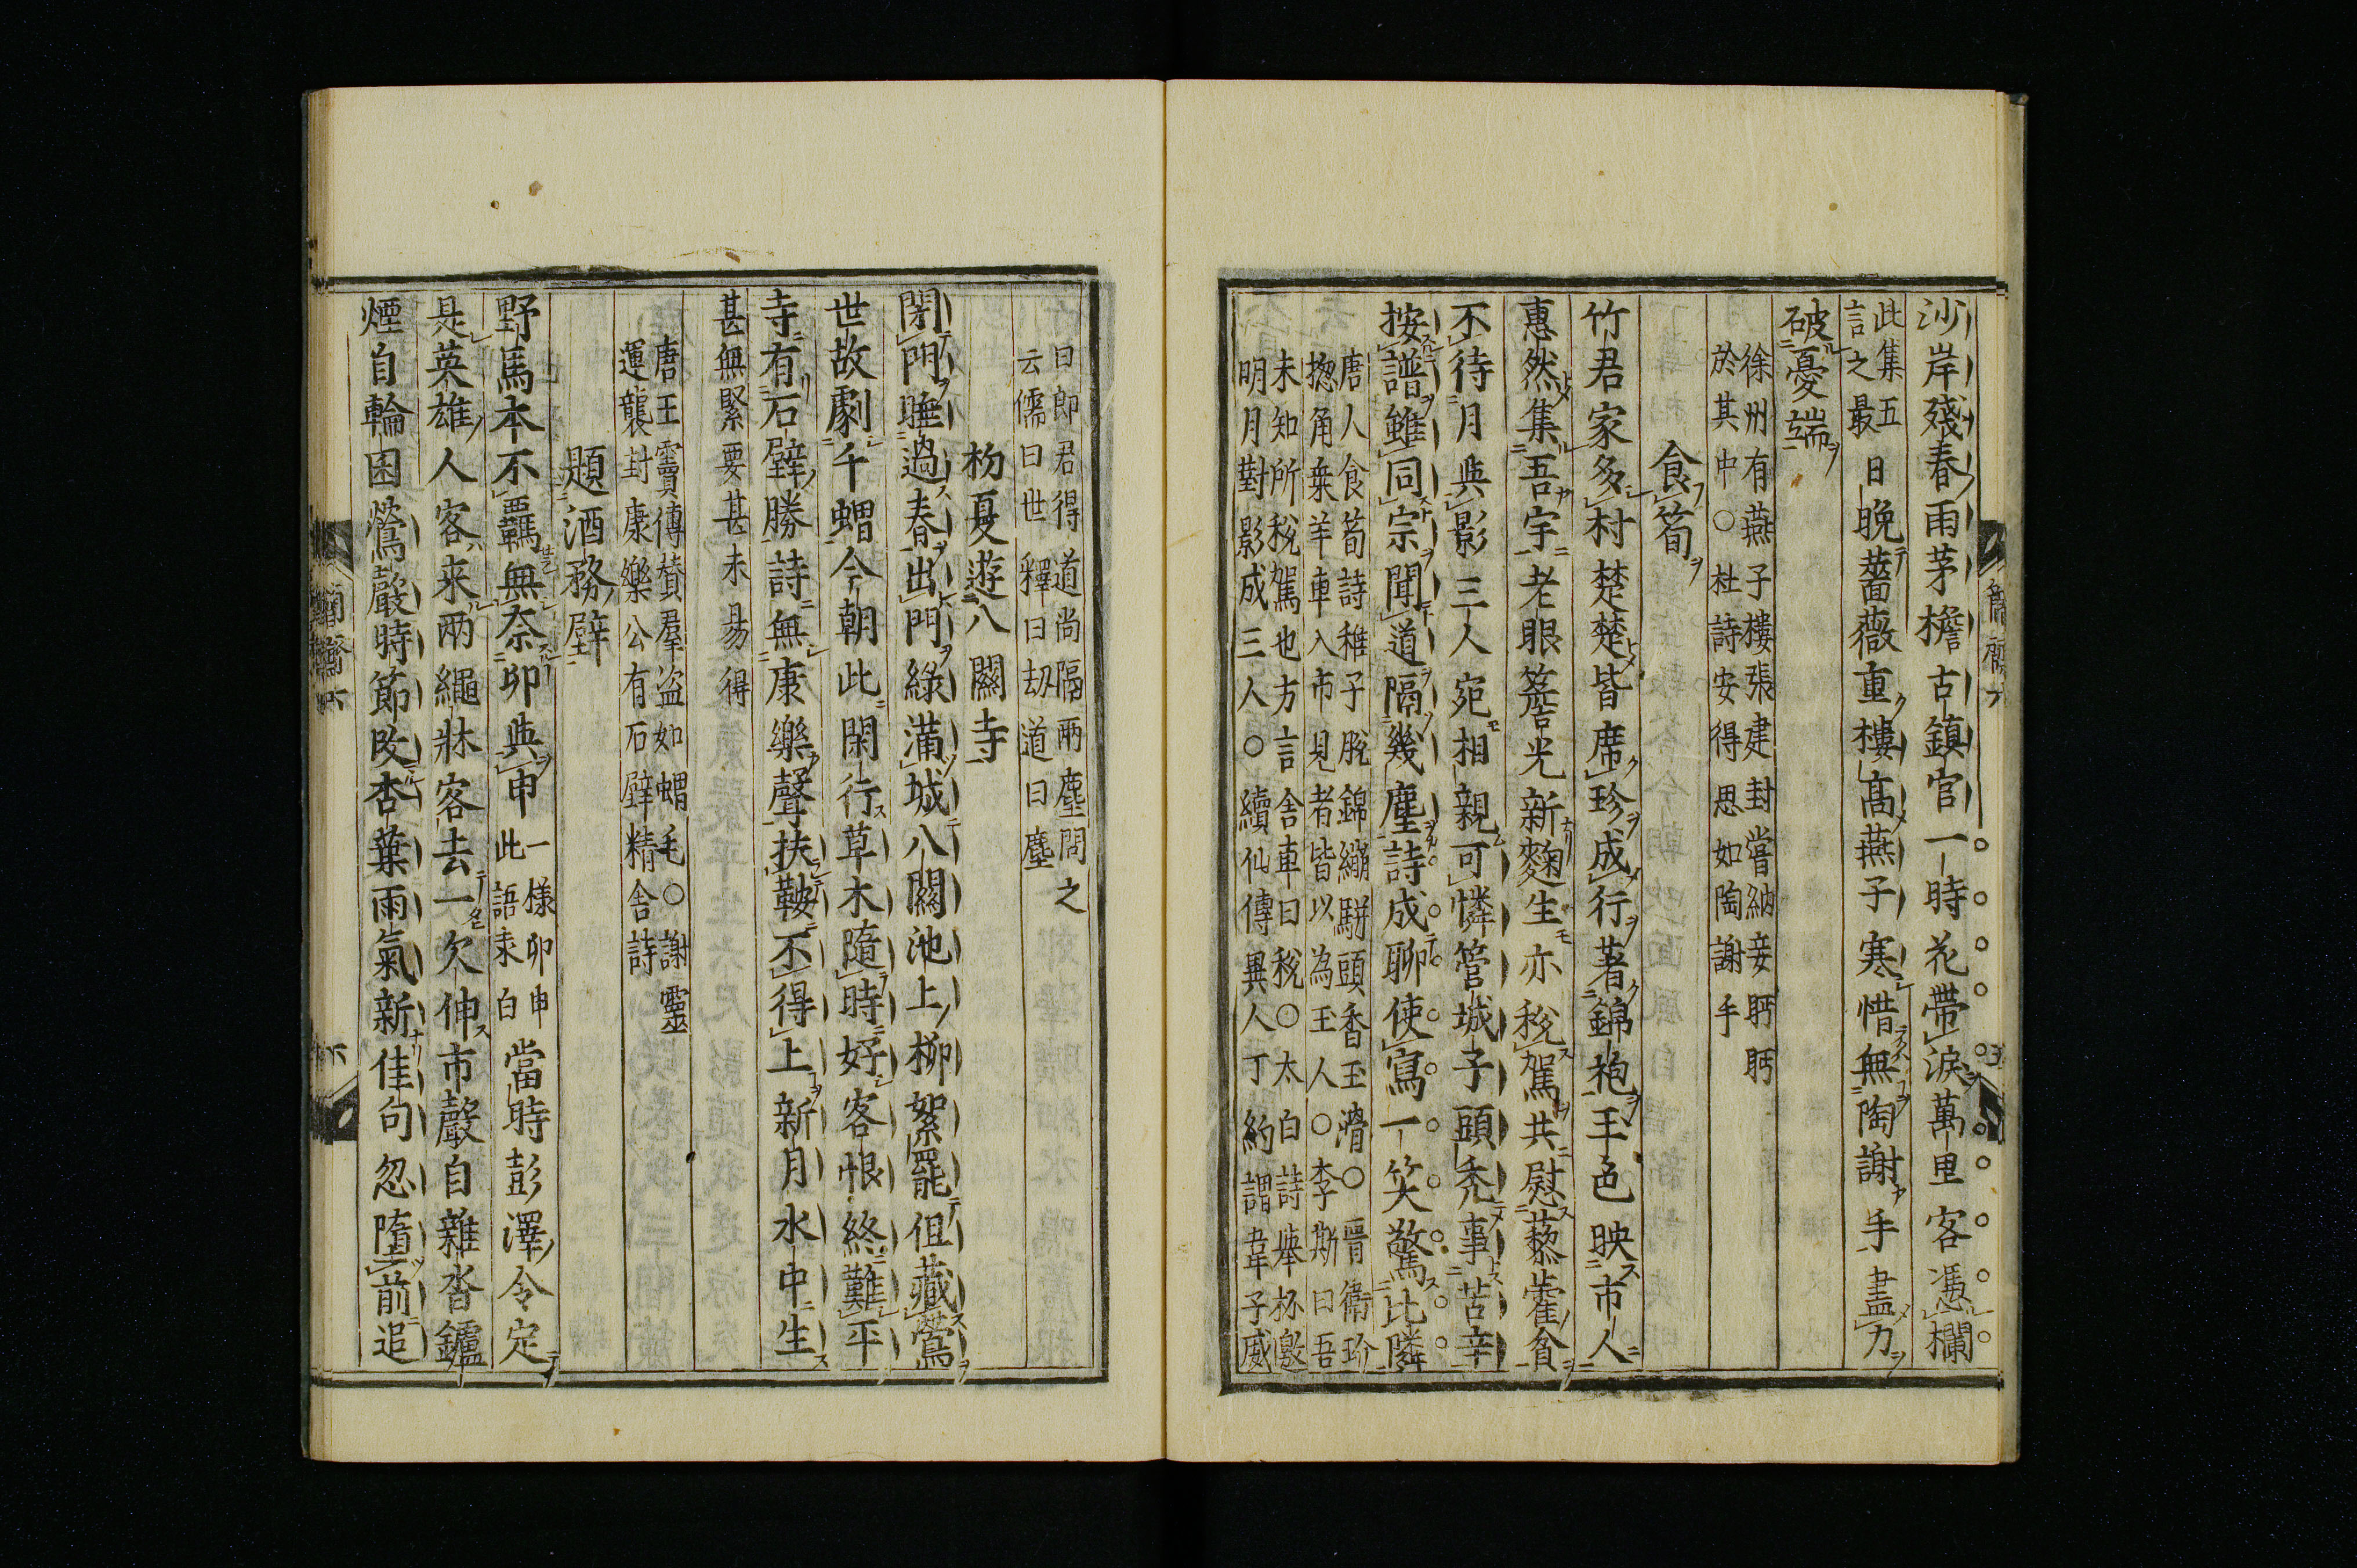 沙岸殘春雨茅檐古鎮官一時花帶淚萬里客憑欄
此集五
言之最
日晚薔薇重樓高燕子寒惜無陶謝手盡力
破憂端
徐州有燕子樓張建封嘗納妾盻盻
於其中○杜詩安得思如陶謝手
食筍
竹君家多村楚楚皆席珍成行著錦袍玉色映市人
惠然集吾宇老眼簷光新麴生亦稅駕共慰藜藿貧
不待月與影三人宛相親可憐管城子頭禿事苦辛
按譜雖同宗聞道隔幾塵詩成聊使寫一笑驚比隣
唐人食筍詩稚子脫錦繃駢頭香玉滑○晉衛玠
揔角乗羊車入市見者皆以為玉人○李斯曰吾
未知所稅駕也方言舍車曰稅○太白詩舉杯邀
明月對影成三人○續仙傳異人丁約謂韋子威
曰郎君得道尚隔兩塵問之
云儒曰世釋曰刼道曰塵
枌夏遊八關寺
閉門睡過春出門綠滿城八關池上柳絮罷但藏鶯
世故劇千蝟今朝此閑行草木隨時好客恨終難平
寺有石壁勝詩無康樂聲扶鞍不得上新月水中生
甚無緊要甚未易得
唐王竇傳贊羣盗如蝟毛○謝靈
運襲封康樂公有石壁精舍詩
題酒務壁
野馬本不羈無奈卯與申
一樣卯申
此語未白
當時彭澤令定
是英雄人客来兩繩牀客去一欠伸市聲自雜沓鑪
煙自輪囷鶯聲時節改杏葉雨氣新佳句忽墮前追
簡齋六
六